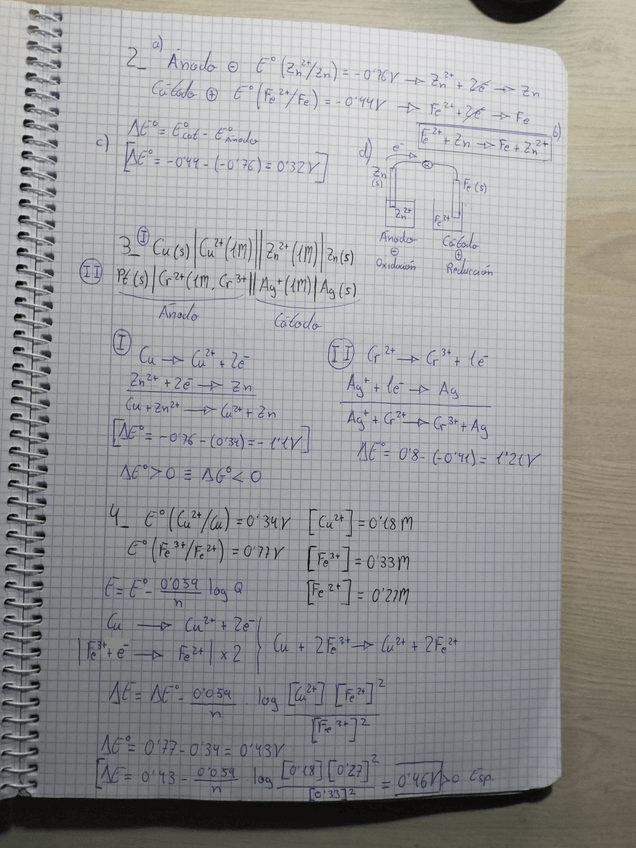 2_ a) Ánodo ⊖ E° (Zn²⁺/Zn) = -0'76V → Zn²⁺ + 2e⁻ → Zn
Cátodo ⊕ E° (Fe²⁺/Fe) = -0'44V → Fe²⁺ + 2e⁻ → Fe
b) Fe²⁺ + Zn → Fe + Zn²⁺
ΔE° = E°cat - E°ánodo
c) [ΔE° = -0'44 - (-0'76) = 0'32V]
d) e⁻
Zn (s) Fe (s)
Zn²⁺ Fe²⁺
Ánodo Cátodo
⊖ ⊕
Oxidación Reducción
3_ Ⓘ Cu(s) | Cu²⁺(1M) || Zn²⁺(1M) | Zn(s)
ⒾⒾ Pt(s) | Cr²⁺(1M, Cr³⁺ || Ag⁺(1M) | Ag(s)
Ánodo Cátodo
Ⓘ Cu → Cu²⁺ + 2e⁻
Zn²⁺ + 2e⁻ → Zn
Cu + Zn²⁺ → Cu²⁺ + Zn
[ΔE° = -0'76 - (0'34) = -1'1V]
ΔE° > 0 ≡ ΔG° < 0
ⒾⒾ Cr²⁺ → Cr³⁺ + 1e⁻
Ag⁺ + 1e⁻ → Ag
Ag⁺ + Cr²⁺ → Cr³⁺ + Ag
ΔE° = 0'8 - (-0'41) = 1'21V
4_ E° (Cu²⁺/Cu) = 0'34V [Cu²⁺] = 0'18M
E° (Fe³⁺/Fe²⁺) = 0'77V [Fe³⁺] = 0'33M
[Fe²⁺] = 0'27M
E = E° - 0'059/n log Q
Cu → Cu²⁺ + 2e⁻
|Fe³⁺ + e⁻ → Fe²⁺| x 2 } Cu + 2Fe³⁺ → Cu²⁺ + 2Fe²⁺
ΔE = ΔE° - 0'059/n · log [Cu²⁺] [Fe²⁺]²/[Fe³⁺]²
ΔE° = 0'77 - 0'34 = 0'43V
[ΔE = 0'43 - 0'059/n · log [0'18] [0'27]²/[0'33]² = 0'46V > 0 Esp.